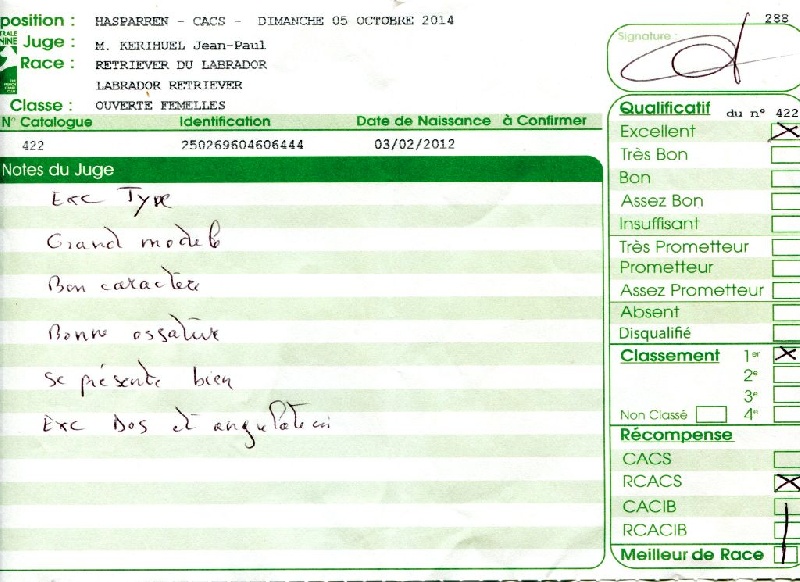 position : HASPARREN - CACS - DIMANCHE 05 OCTOBRE 2014
288
Juge : M. KERIHUEL Jean-Paul
Signature :
Race : RETRIEVER DU LABRADOR
LABRADOR RETRIEVER
Classe : OUVERTE FEMELLES
N° Catalogue Identification Date de Naissance à Confirmer
422 250269604606444 03/02/2012
Notes du Juge
Exc Type
Grand modele
Bon caractère
Bonne ossature
se présente bien
Exc Dos et angulation
Qualificatif du n° 422
Excellent
Très Bon
Bon
Assez Bon
Insuffisant
Très Prometteur
Prometteur
Assez Prometteur
Absent
Disqualifié
Classement 1er
2e
3e
Non Classé 4e
Récompense
CACS
RCACS
CACIB
RCACIB
Meilleur de Race